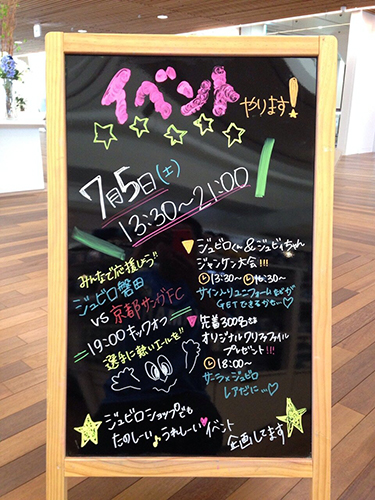 イベント やります!
7月5日(土)
13:30～21:00
みんなで応援しよう!!
ジュビロ磐田
vs 京都サンガFC
19:00 キックオフ
選手に熱いエールを!!
ジュビロくん&ジュビィちゃん
ジャンケン大会!!!
13:30～ 16:30～
サイン入りユニフォームなどが
GETできるかも…♡
先着300名さま
オリジナルクリアファイル
プレゼント!!!
18:00～
サーラ×ジュビロ
レアだに…♡
ジュビロショップでも
たのしーい♪うれしーい♥イベント
企画してます